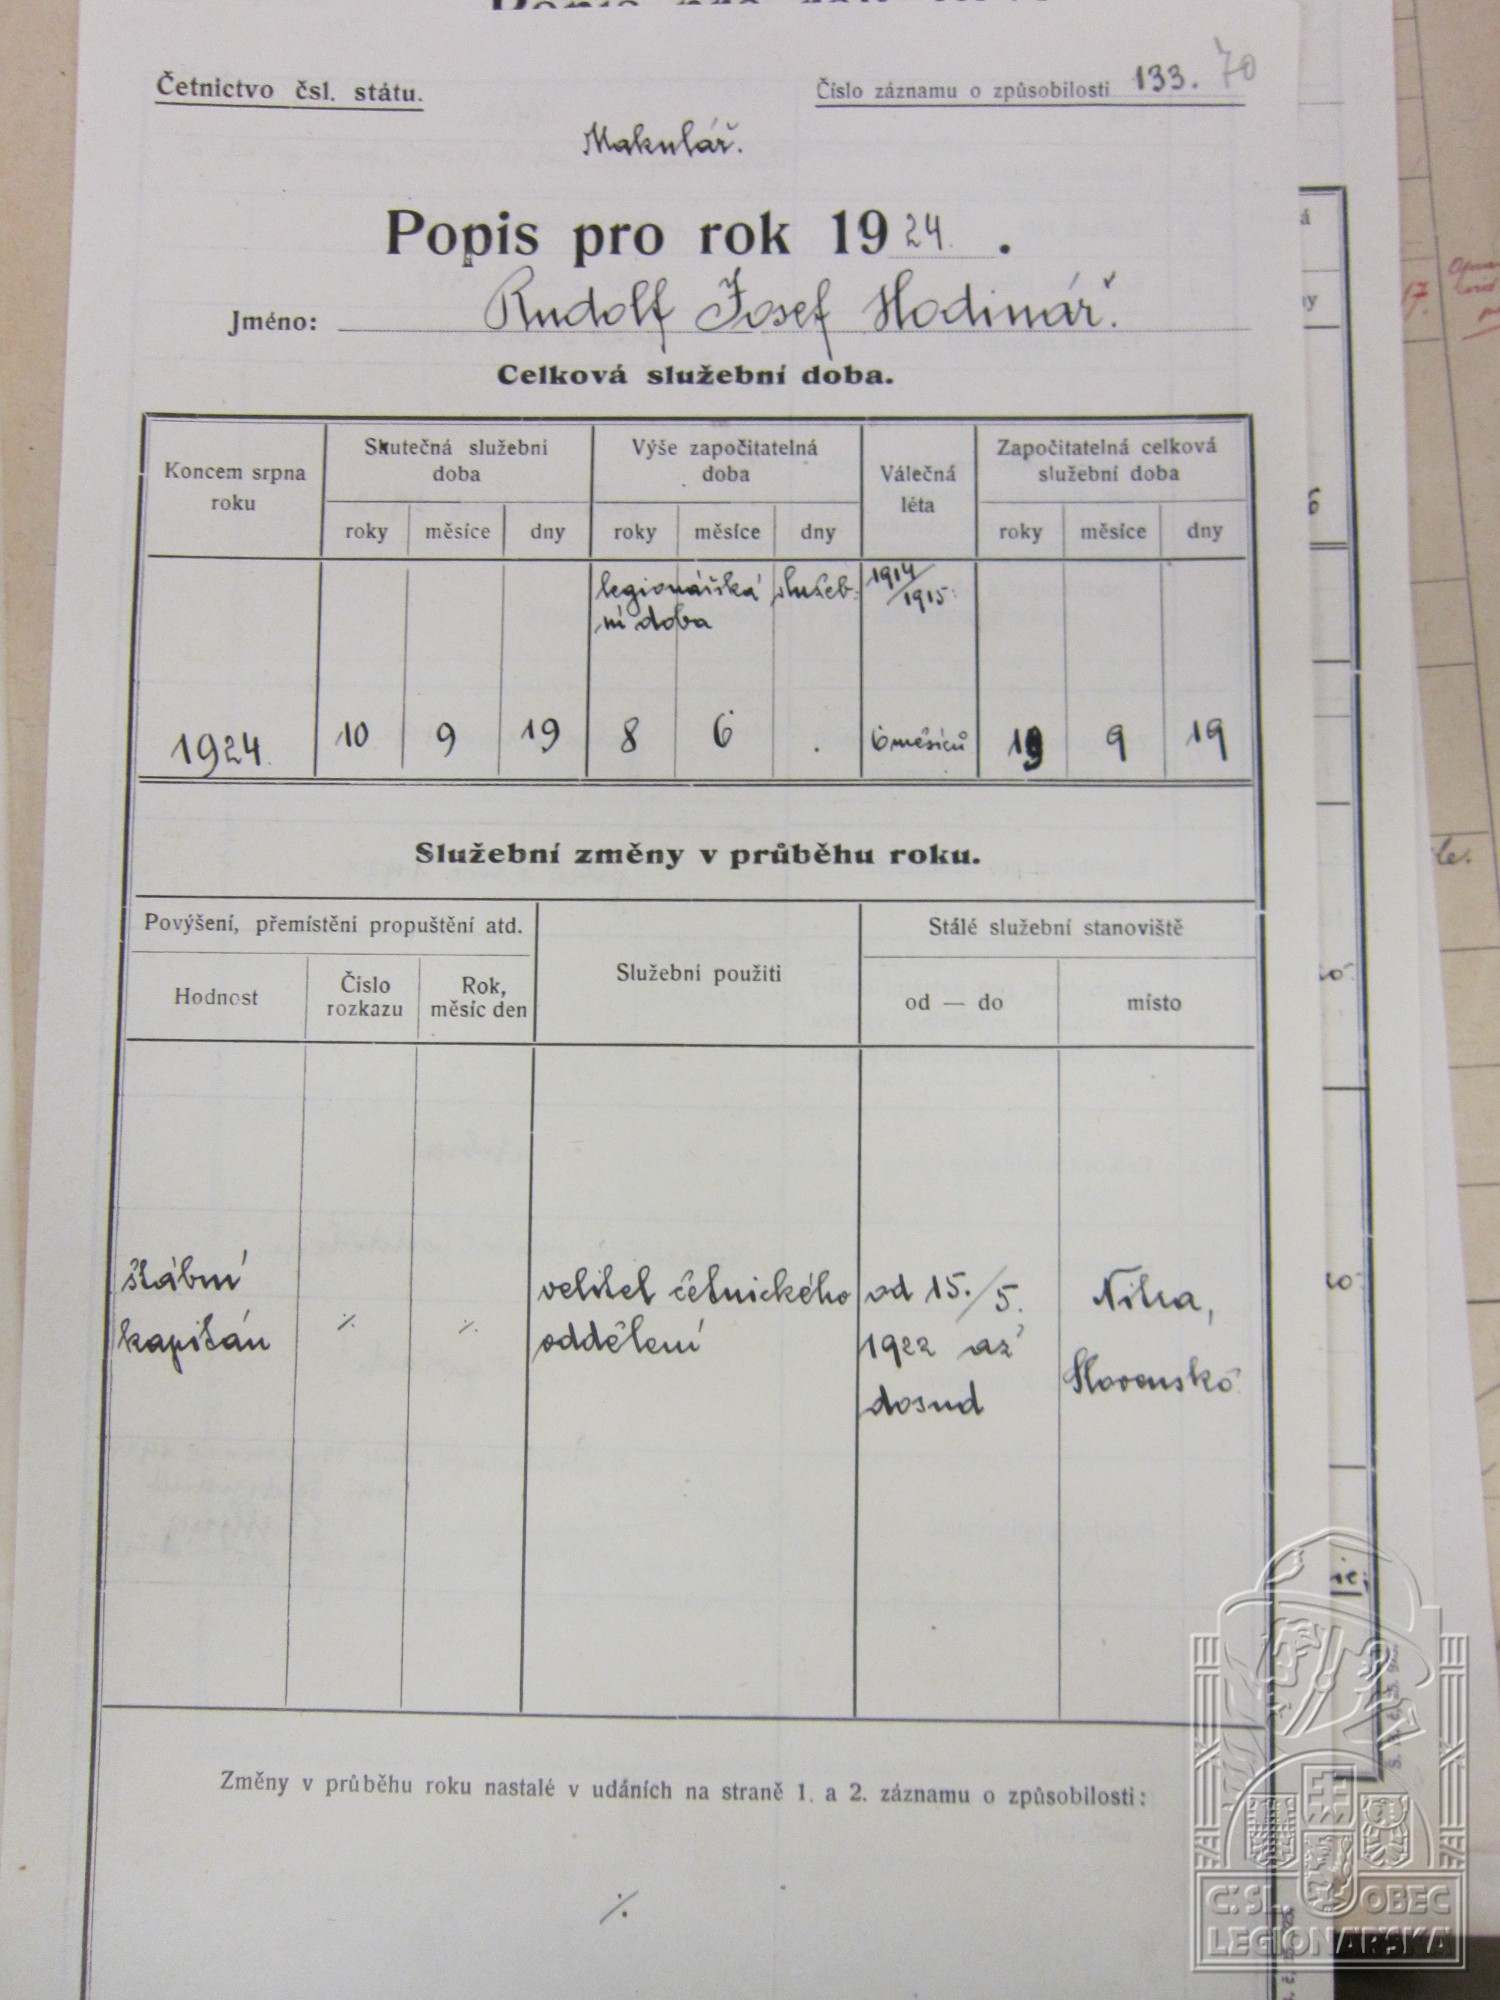 Četnictvo čsl. státu.
Číslo záznamu o způsobilosti 133. 70
Makulář.
Popis pro rok 1924.
Jméno: Rudolf Josef Hodinář.
Celková služební doba.
Koncem srpna roku
Skutečná služební doba
Výše započitatelná doba
Válečná léta
Započitatelná celková služební doba
roky měsíce dny roky měsíce dny roky měsíce dny
legionářská služeb-
ní doba
1914/1915:
1924. 10 9 19 8 6 . 6 měsíců 19 9 19
Služební změny v průběhu roku.
Povýšení, přemístění propuštění atd.
Služební použiti
Stálé služební stanoviště
Hodnost
Číslo rozkazu
Rok, měsíc den
od — do
místo
štábní
kapitán
⁒
⁒
velitel četnického
oddělení
od 15./5.
1922 až
dosud
Nitra,
Slovensko.
Změny v průběhu roku nastalé v udáních na straně 1. a 2. záznamu o způsobilosti:
⁒
Č.SL. OBEC
LEGIONÁŘSKÁ